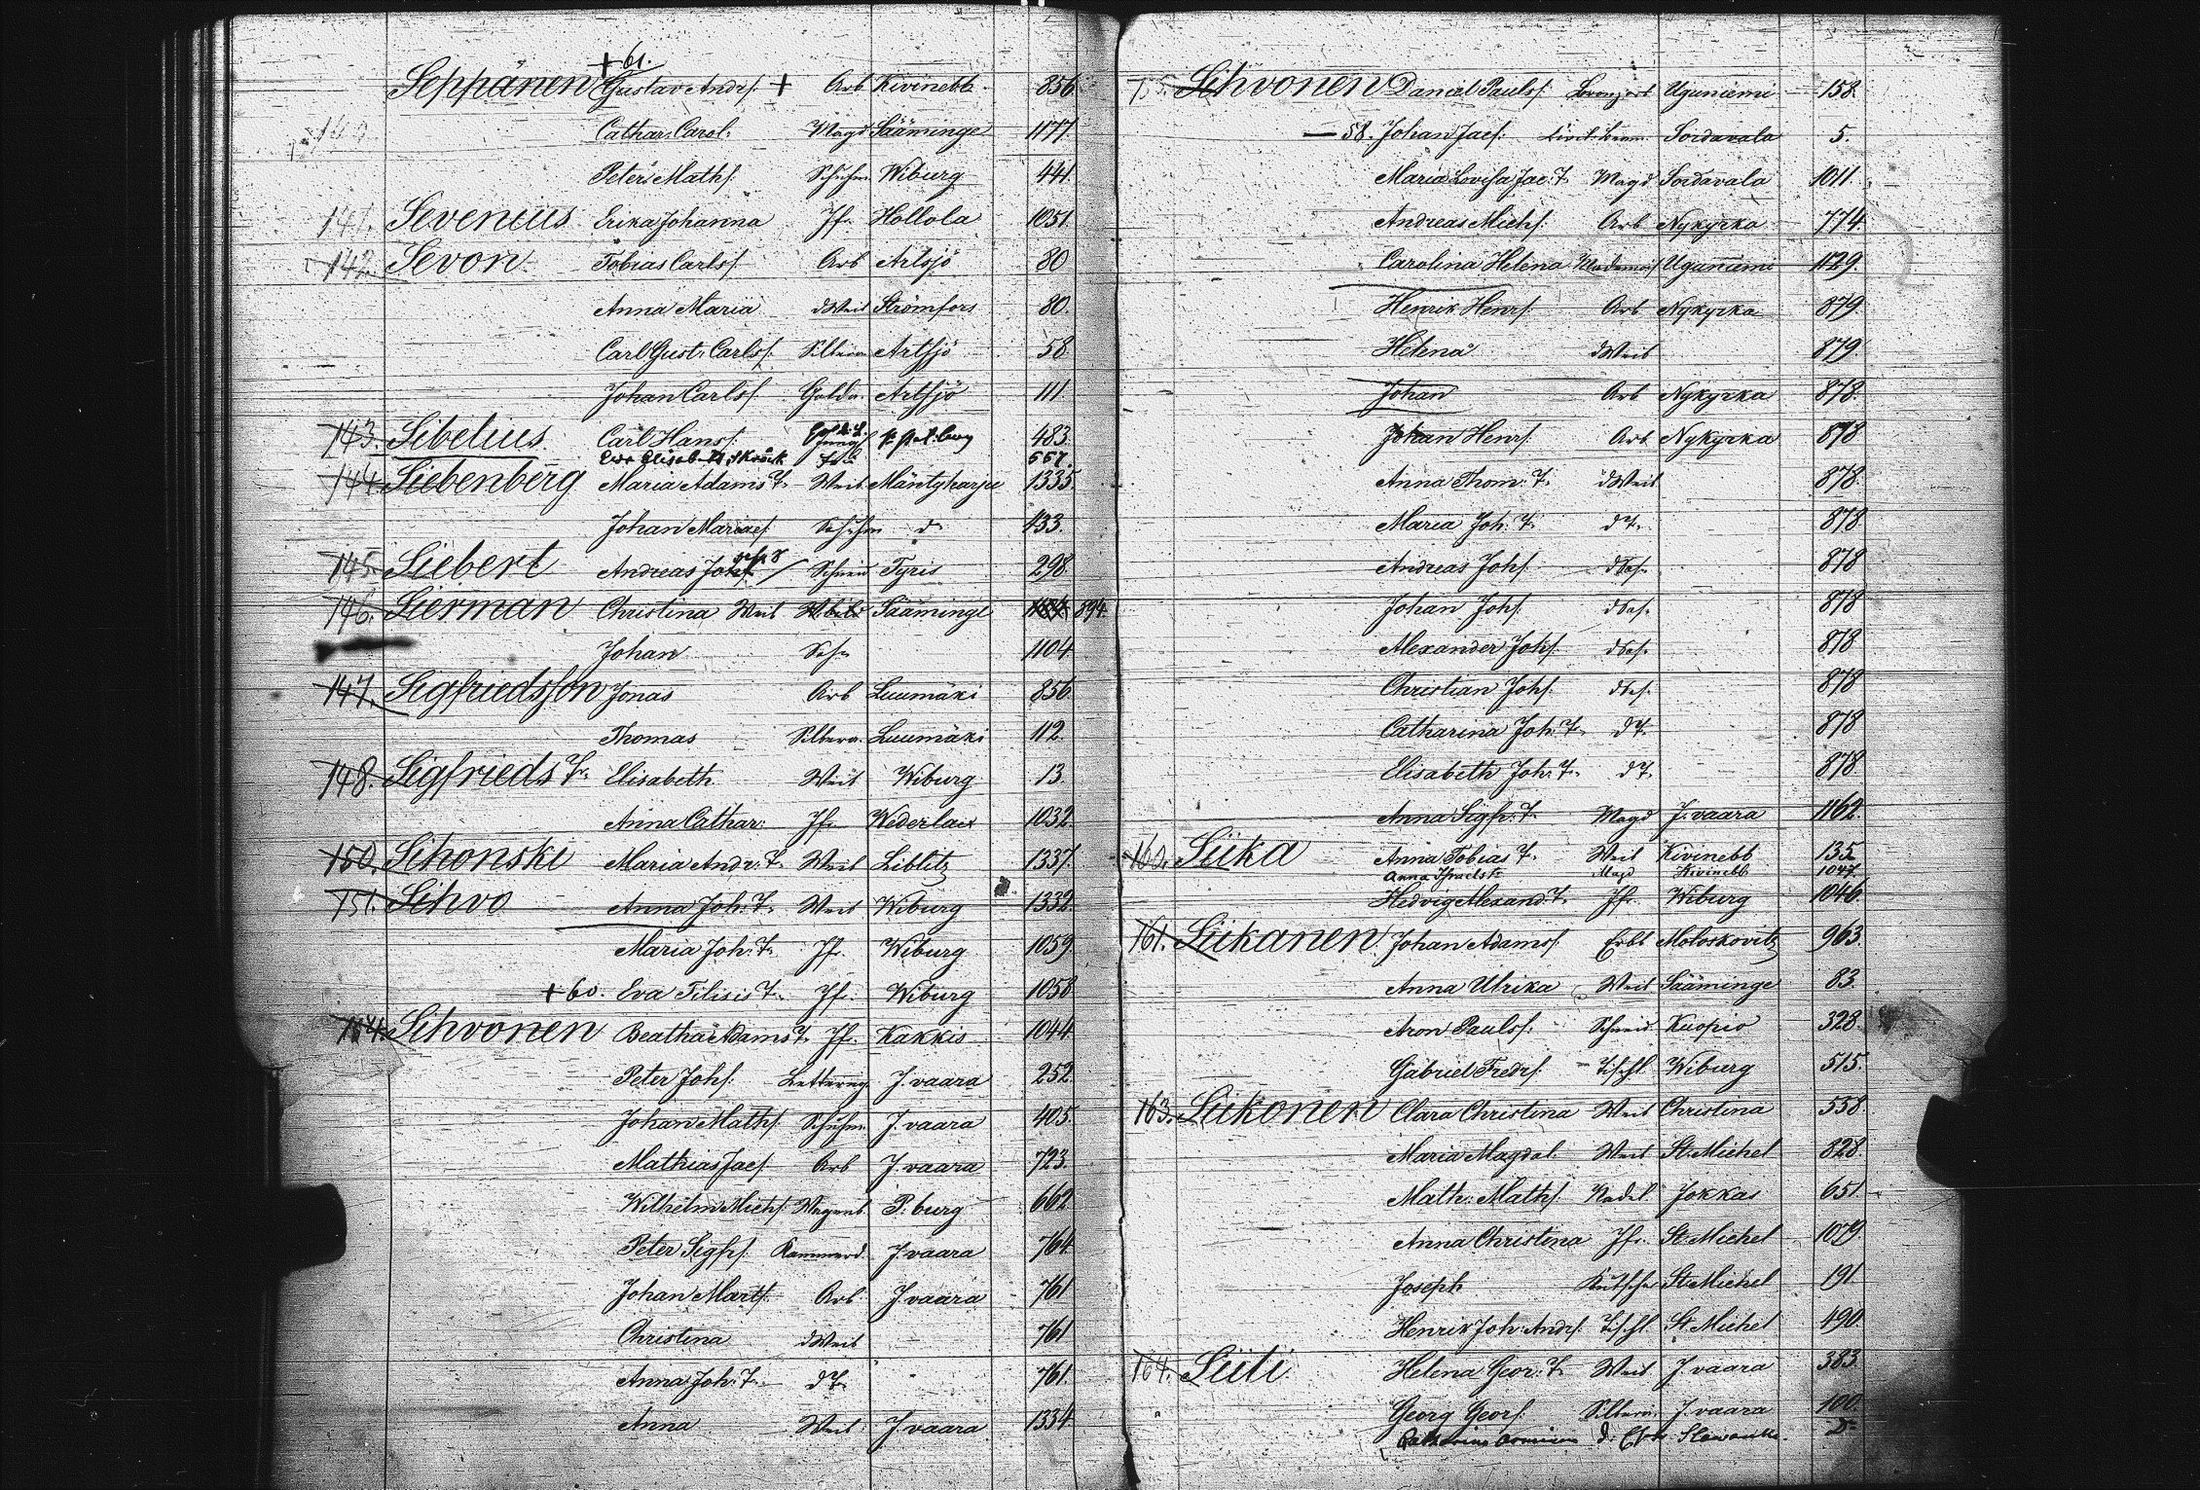 + 61.
Seppänen Gustav Andrs. + Arb Kivinebb. 856
140. Cathar. Carol. Magd Sääminge 1177.
Peter Maths. Schuhm Wiburg 441.
141. Sevenius Erika Johanna Jfr. Hollola 1051.
142. Sevon Tobias Carlss. Arb Artsjö 80
Anna Maria d Weib Strömfors 80.
Carl Gust. Carlss. Silberar. Artsjö 58
Johan Carlss. Golda. Artsjö 111.
143. Sibelius Carl Hanss. 483.
Eva Elisabeth 557.
144. Siebenberg Maria Adams T. Weib Mäntyharju 1335.
Johan Marias. Schuhm d. 433.
145. Siebert Andreas Schneid Tyris 298.
146. Sierman Christina Weib Sääminge 894.
Johan Sohn 1104.
147. Sigfriedsson Jonas Arb Luumäki 856.
Thomas Silbera. Luumäki 112.
148. Sigfrieds T. Elisabeth Weib Wiburg 13.
Anna Cathar. Jfr. Wederlax 1032.
150. Sihonski Maria Andr. T. Weib Liblitz 1337.
151. Sihvo Anna Joh. T. Weib Wiburg 1332.
Maria Joh. T. Jfr. Wiburg 1059.
+ 60. Eva T. Jfr. Wiburg 1058
154. Sihvonen Beatha Adams T. Jfr. Kakkis 1044.
Peter Johs. J. vaara 252
Johan Maths. Schuhm J. vaara 405.
Mathias Jacs. Arb J. vaara 723.
Wilhelm Michs. Wagenb P. burg 662
Peter Sigfrs. Kammerd. J. vaara 764
Johan Marts. Arb. J vaara 761
Christina d Weib 761
Anna Joh. T. d T. 761.
Anna Weib J. vaara 1334
155. Sihvonen Daniel Pauls. Uguniemi 158.
— 58. Johan Jacs. Sordavala 5.
Maria Lovisa Jac. T. Magd Sordavala 1011.
Andreas Michs. Arb Nykyrka 774.
Carolina Helena Uguniemi 1129.
Henrik Henrs. Arb Nykyrka 879.
Helena d Weib 879.
Johan Arb Nykyrka 878.
Johan Henrs. Arb. Nykyrka 878
Anna Thom. T. d Weib 878.
Maria Joh. T. d T. 878
Andreas Johs. d Soh. 878
Johan Johs. d Soh. 878
Alexander Johs. d Soh. 878
Christian Johs. d Soh. 878
Catharina Joh. T. d T. 878
Elisabeth Joh. T. d T. 878
Anna Sigfr. T. Magd J. vaara 1162.
160. Siika Anna Tobias T. Weib Kivinebb 135
Anna Israels T. Magd Kivinebb 1047.
Hedvig Alexand. T. Jfr. Wiburg 1046.
161. Siikanen. Johan Adams. Erbt Moloskovitz 963.
Anna Ulrika Weib Sääminge 83.
Aron Pauls. Schneid. Kuopio 328.
Gabriel Fredrs. Tischl. Wiburg 515.
163. Siikonen Clara Christina Weib Christina 558.
Maria Magdal. Weib St. Michel 828
Math. Maths. Jokkas 651.
Anna Christina Jfr. St. Michel 1079.
Joseph Kutscher St. Michel 191
Henrik Joh. Andrs. Tischl. St. Michel 490.
164. Siiti Helena Geor. T. Weib J. vaara 383.
Georg Geors. Silbera. J. vaara 100.